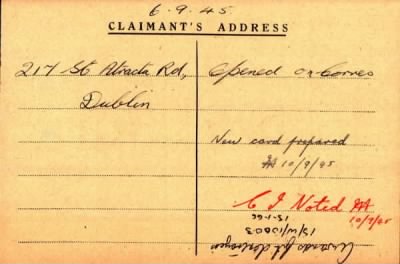 6.9.45.
CLAIMANT'S ADDRESS
217 St Attracta Rd,
Dublin
Opened on Corres
New card prepared
10/9/45
C I Noted
10/9/45
15-1-66